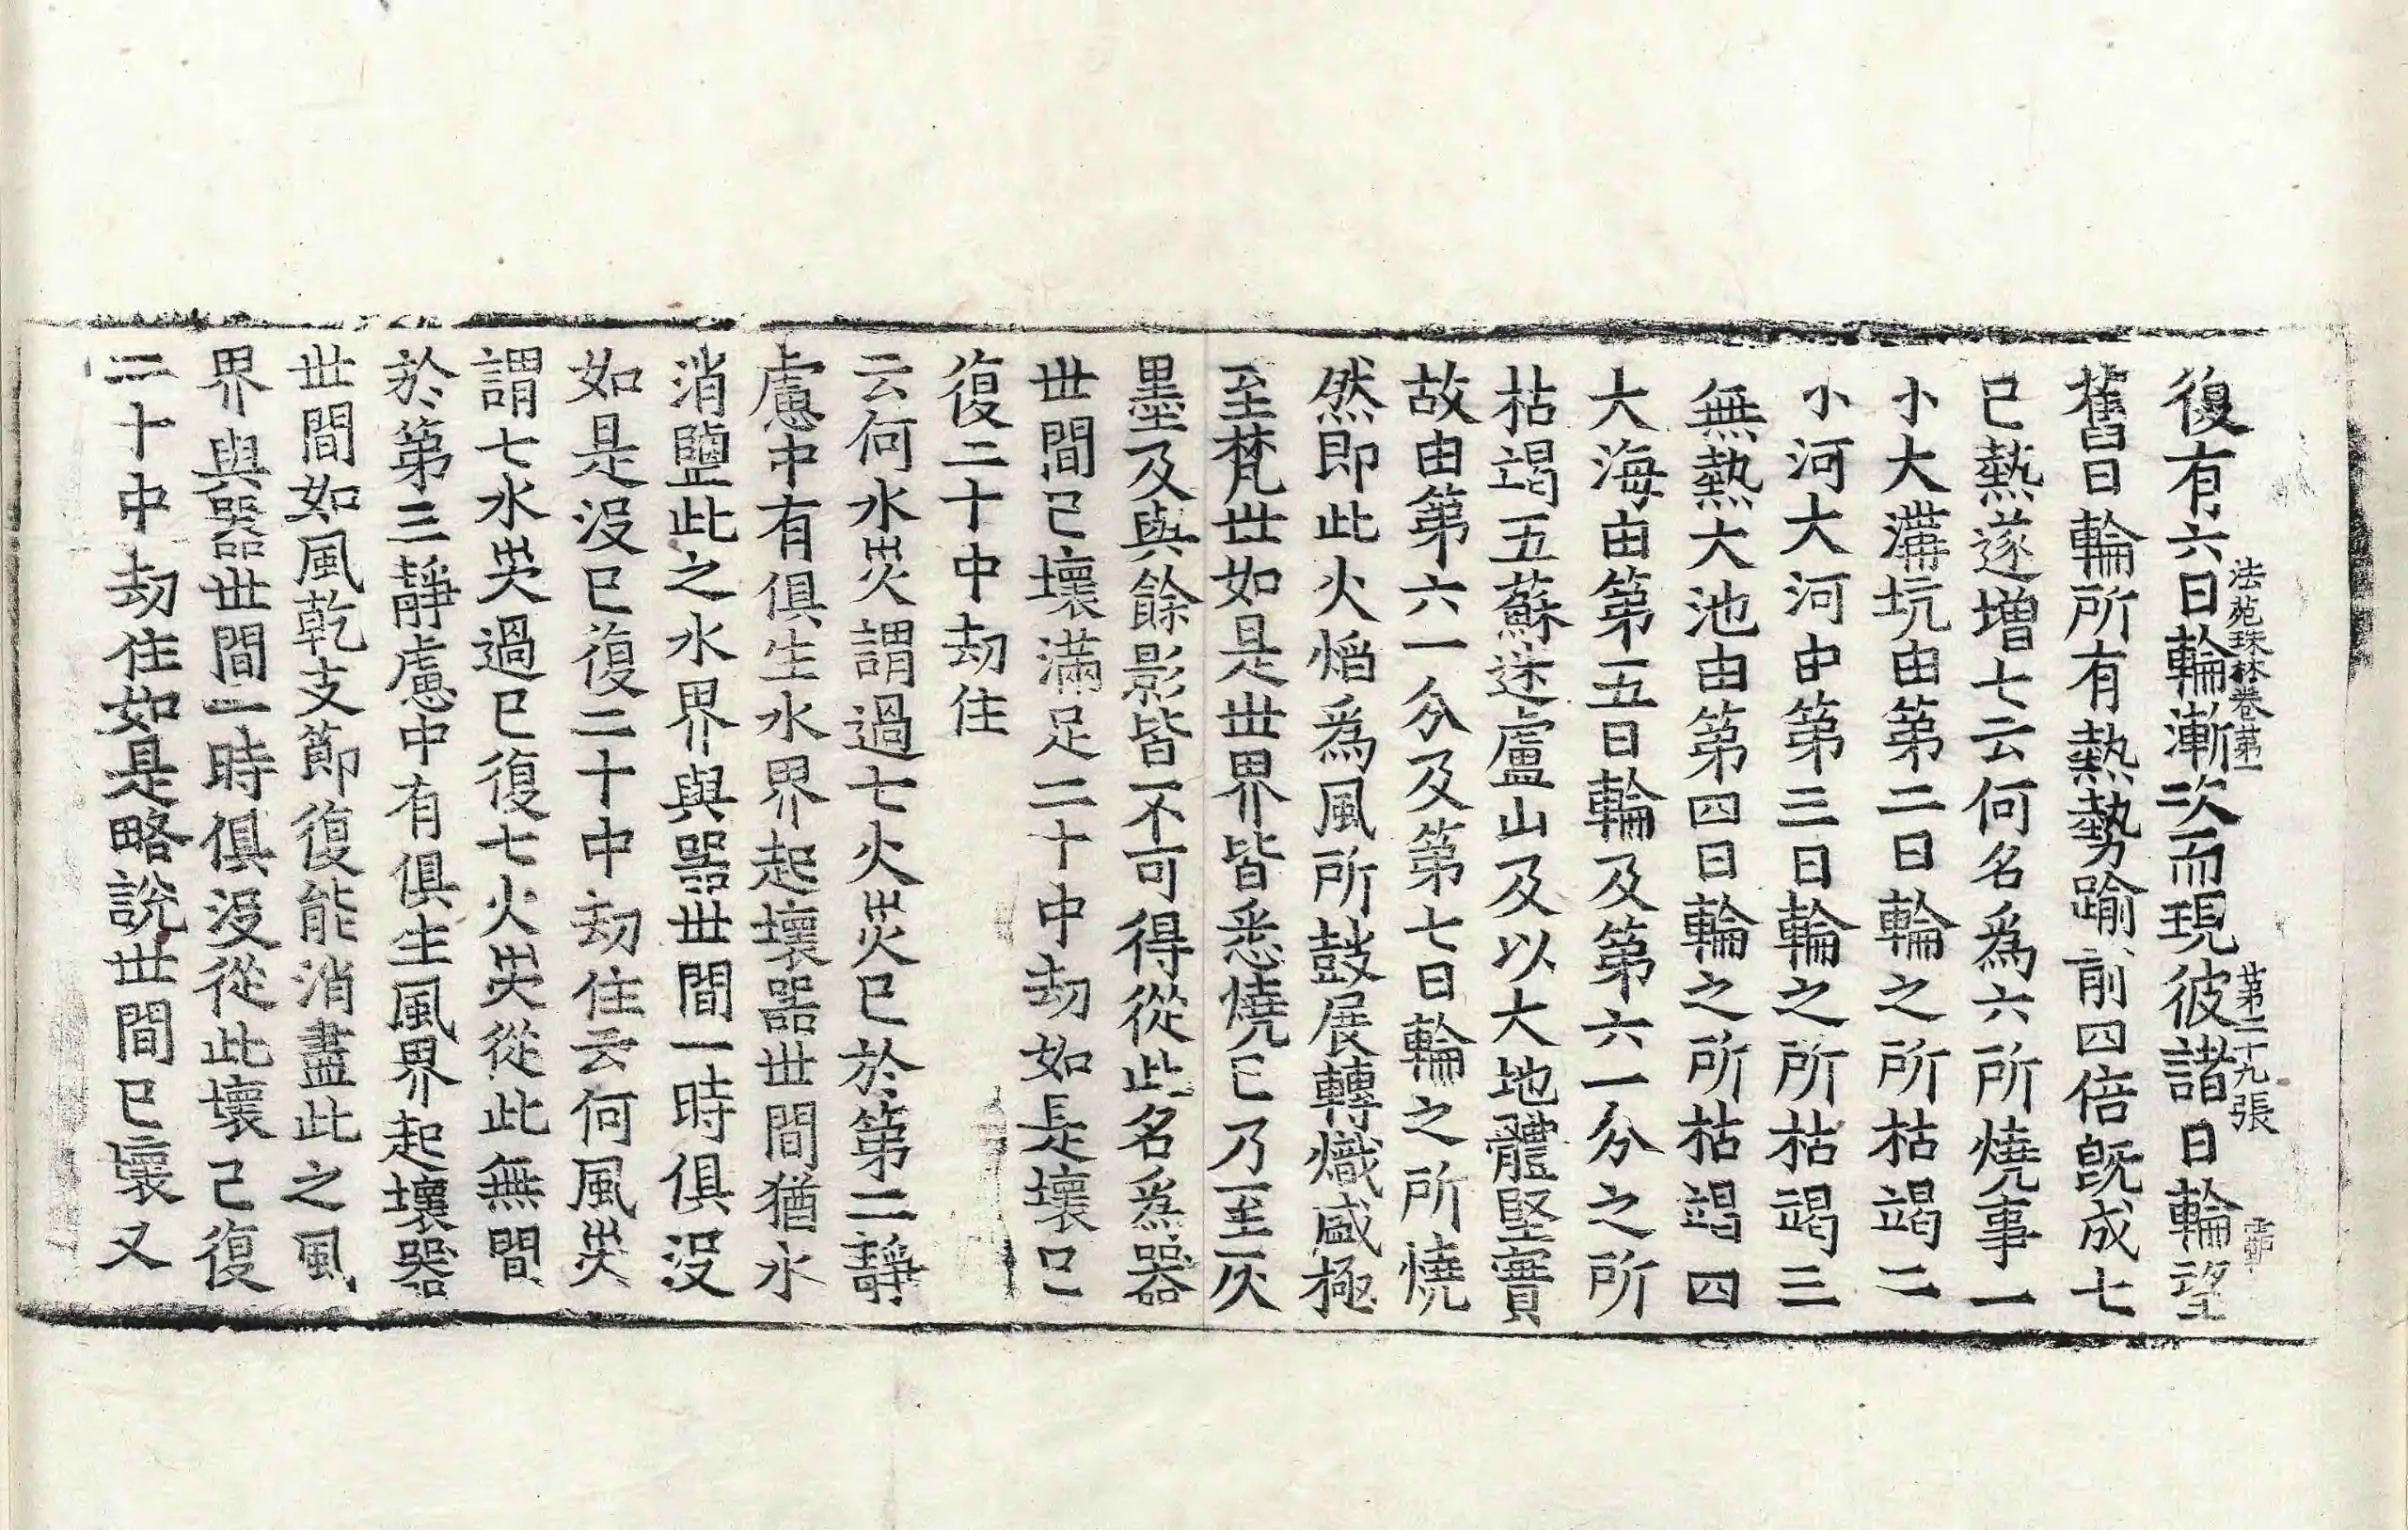 復有六日輪漸次而現彼諸日輪望
法苑珠林卷第一 第二十九張
舊日輪所有熱勢踰前四倍旣成七
已熱遂增七云何名爲六所燒事一
小大溝坑由第二日輪之所枯竭二
小河大河由第三日輪之所枯竭三
無熱大池由第四日輪之所枯竭四
大海由第五日輪及第六一分之所
枯竭五蘇迷盧山及以大地體堅實
故由第六一分及第七日輪之所燒
然即此火焰爲風所鼓展轉熾盛極
至梵世如是世界皆悉燒已乃至灰
墨及與餘影皆不可得從此名爲器
世間已壞滿足二十中劫如是壞已
復二十中劫住
云何水災謂過七火災已於第二靜
慮中有俱生水界起壞器世間猶水
消鹽此之水界與器世間一時俱沒
如是沒已復二十中劫住云何風災
謂七水災過已復七火災從此無間
於第三靜慮中有俱生風界起壞器
世間如風乾支節復能消盡此之風
界與器世間一時俱沒從此壞已復
二十中劫住如是略說世間已壞又